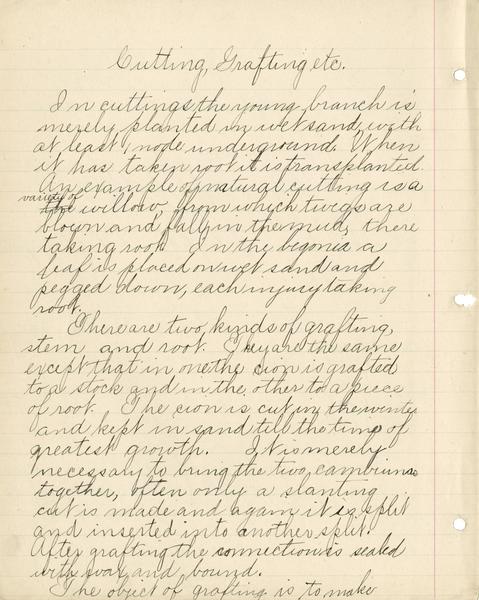 Cutting, Grafting etc.
In cuttings the young branch is
merely planted in wet sand, with
at least 1 node underground. When
it has taken root it is transplanted.
An example of natural cutting is a
variety of willow, from which twigs are
blown and fall in the mud, there
taking root. In the begonia a
leaf is placed on wet sand and
pegged down, each injury taking
root.
There are two kinds of grafting,
stem and root. They are the same
except that in one the cion is grafted
to a stock and in the other to a piece
of root. The cion is cut in the winter
and kept in sand till the time of
greatest growth. It is merely
necessary to bring the two cambiums
together, often only a slanting
cut is made and again it is split
and inserted into another split.
After grafting the connection is sealed
with wax and bound.
The object of grafting is to make